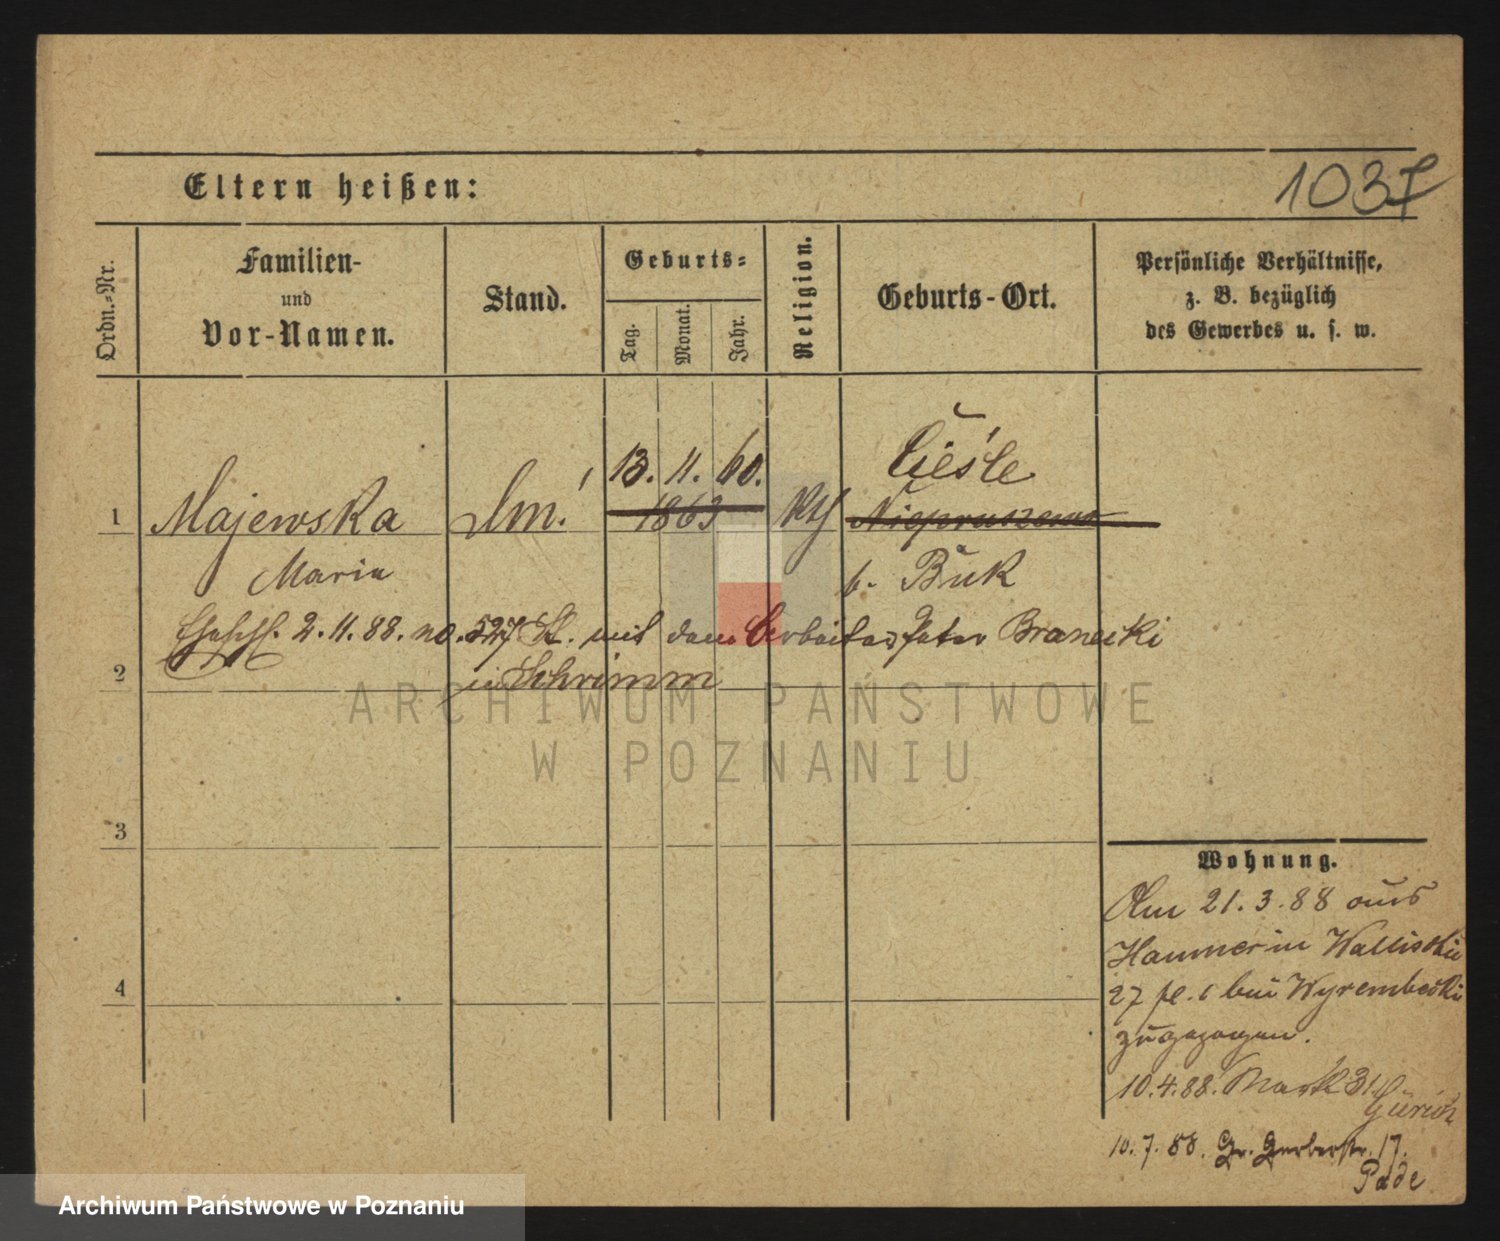 1037
Eltern heißen:
Ordn.-Nr.
Familien-
und
Vor-Namen.
Stand.
Geburts-
Tag.
Monat.
Jahr.
Religion.
Geburts-Ort.
Persönliche Verhältnisse,
z. B. bezüglich
des Gewerbes u. s. w.
13. 11. 60.
Cieśle
1 Majewska 1863 Kth Niepruszewo
Maria b. Buk
2. 11. 88. no. 527 mit dem Arbeiter Peter Branecki
2 in Schrimm
3
4
ARCHIWUM PAŃSTWOWE
W POZNANIU
Wohnung.
Am 21.3.88 aus
Hammer in Wallischei
27 bei Wyrembecki
zugezogen.
10.4.88. Markt 31
10.7.88. Gr. Gerberstr. 17.
Pade
Archiwum Państwowe w Poznaniu